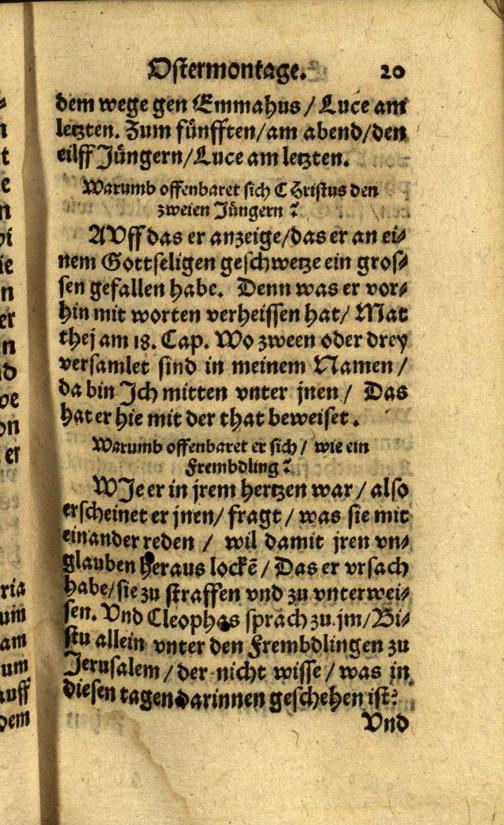 Ostermontage. 20
dem wege gen Emmahus / Luce am
letzten. Zum fünfften/am abend/den
eilff Jüngern/Luce am letzten.
Warumb offenbaret sich CHristus den
zweien Jüngern?
AVff das er anzeige/das er an ei-
nem Gottseligen geschwetze ein gros-
sen gefallen habe. Denn was er vor-
hin mit worten verheissen hat/ Mat
thej am 18. Cap. Wo zween oder drey
versamlet sind in meinem Namen /
da bin Ich mitten vnter jnen / Das
hat er hie mit der that beweiset.
Warumb offenbaret er sich / wie ein
Frembdling?
WJe er in jrem hertzen war / also
erscheinet er jnen/ fragt / was sie mit
einander reden / wil damit jren vn-
glauben heraus lockē / Das er vrsach
habe/sie zu straffen vnd zu vnterwei-
sen. Vnd Cleophas sprach zu jm/Bi-
stu allein vnter den Frembdlingen zu
Jerusalem / der nicht wisse / was in
diesen tagen darinnen geschehen ist?
Vnd
t
e
n
ie
n
er
n
er
ria
um
am
um
auff
dem